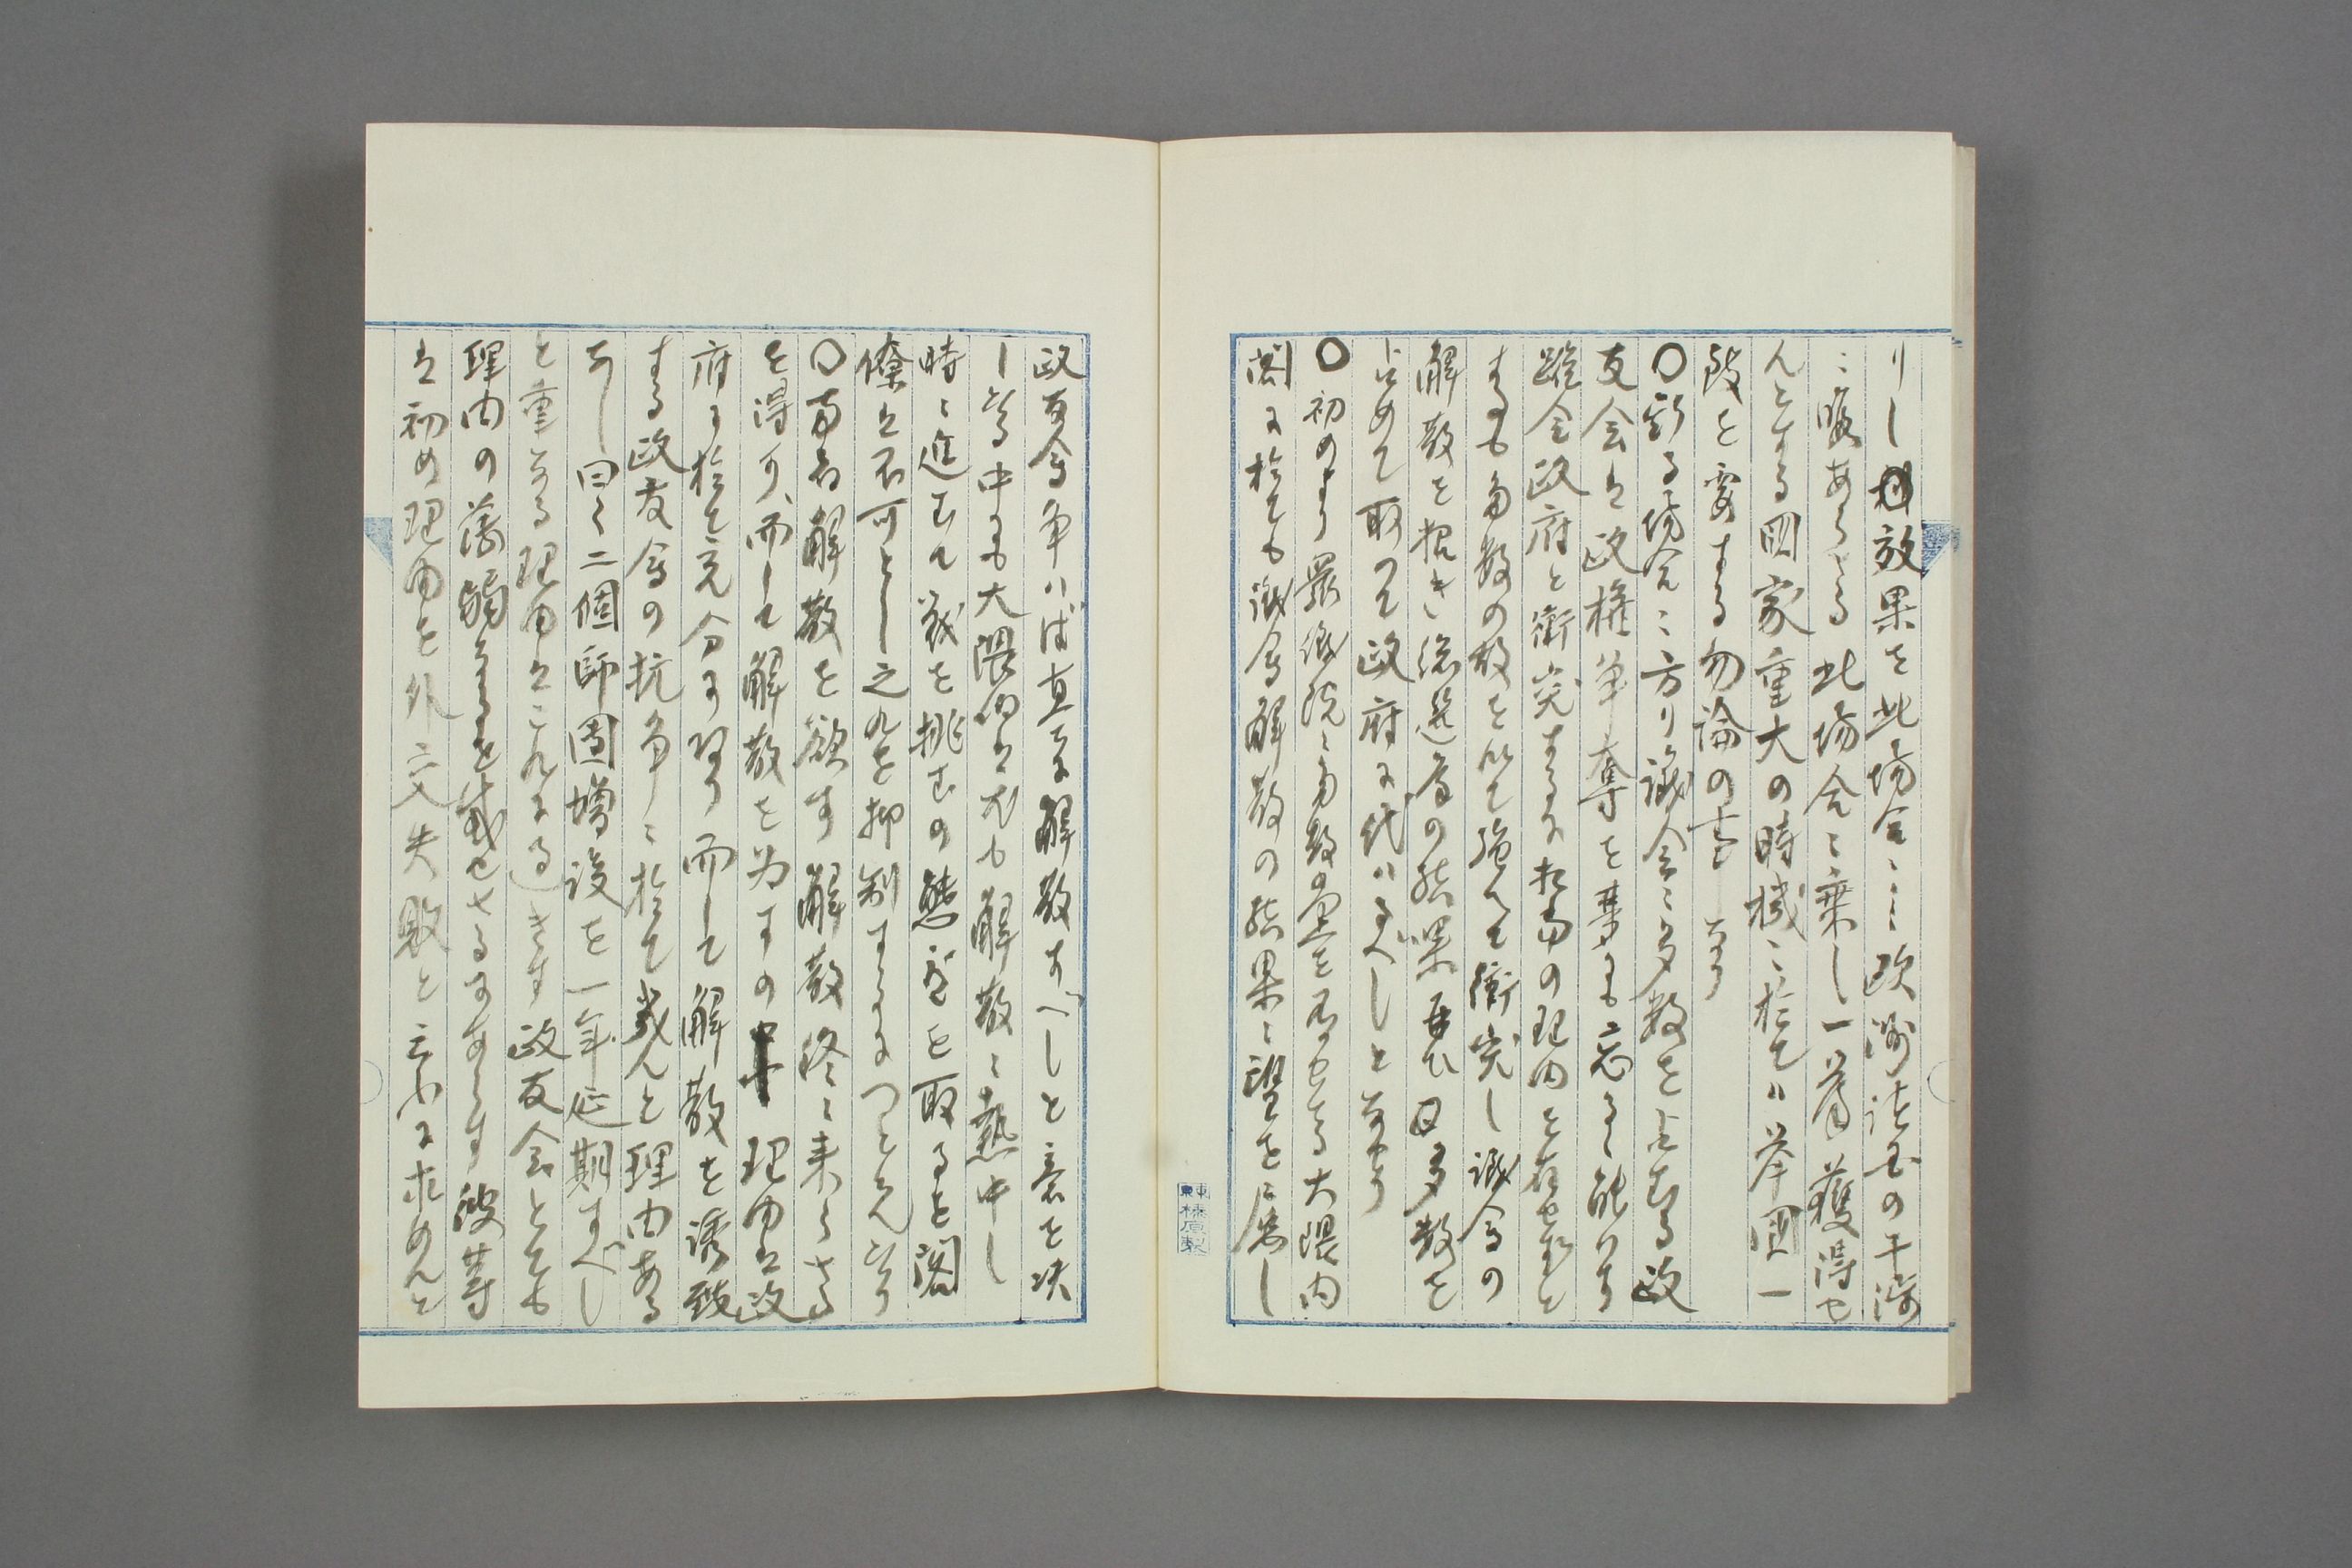 りし効果を此場合ニ欧洲諸国の干渉
ニ暇あらざる此場合ニ乗し一着獲得せ
んとする国家重大の時機ニ於てハ挙国一
致を要する勿論の事なり
〇斯る場合ニ方り議会ニ多数を占むる政
友会は政権争奪を夢にも忘るゝ能はす
縦令政府と衝突するに相当の理由を存せすと
するも多数の数を以て強て衝突し議会の
解散を招き総選挙の結果再ひ日多数を
占めて取つて政府に代ハるべしとなせり
〇初めより衆議院ニ多数の党を有せさる大隈内
閣に於ても議会解散の結果ニ望を属し
政友会争ハば直に解散すべしと意を決
し居る中にも大隈伯は尤も解散ニ熱中し
時ニ進むて戦を挑むの態度を取ると閣
僚は不可とし之れを抑制するにつとめ居り
〇両者解散を欲す解散終ニ来らさる
を得す、而して解散を為すの理由は政
府に於て充分に有り而して解散を誘致
する政友会の抗争ニ於て幾んと理由ある
なし曰く二個師団増設を一年延期すべし
と重なる理由はこれにあり政友会とても
理由の薄弱なるを感せさるにあらす彼等
は初め理由を外交失敗と云ふに求めんと
東京榛原製